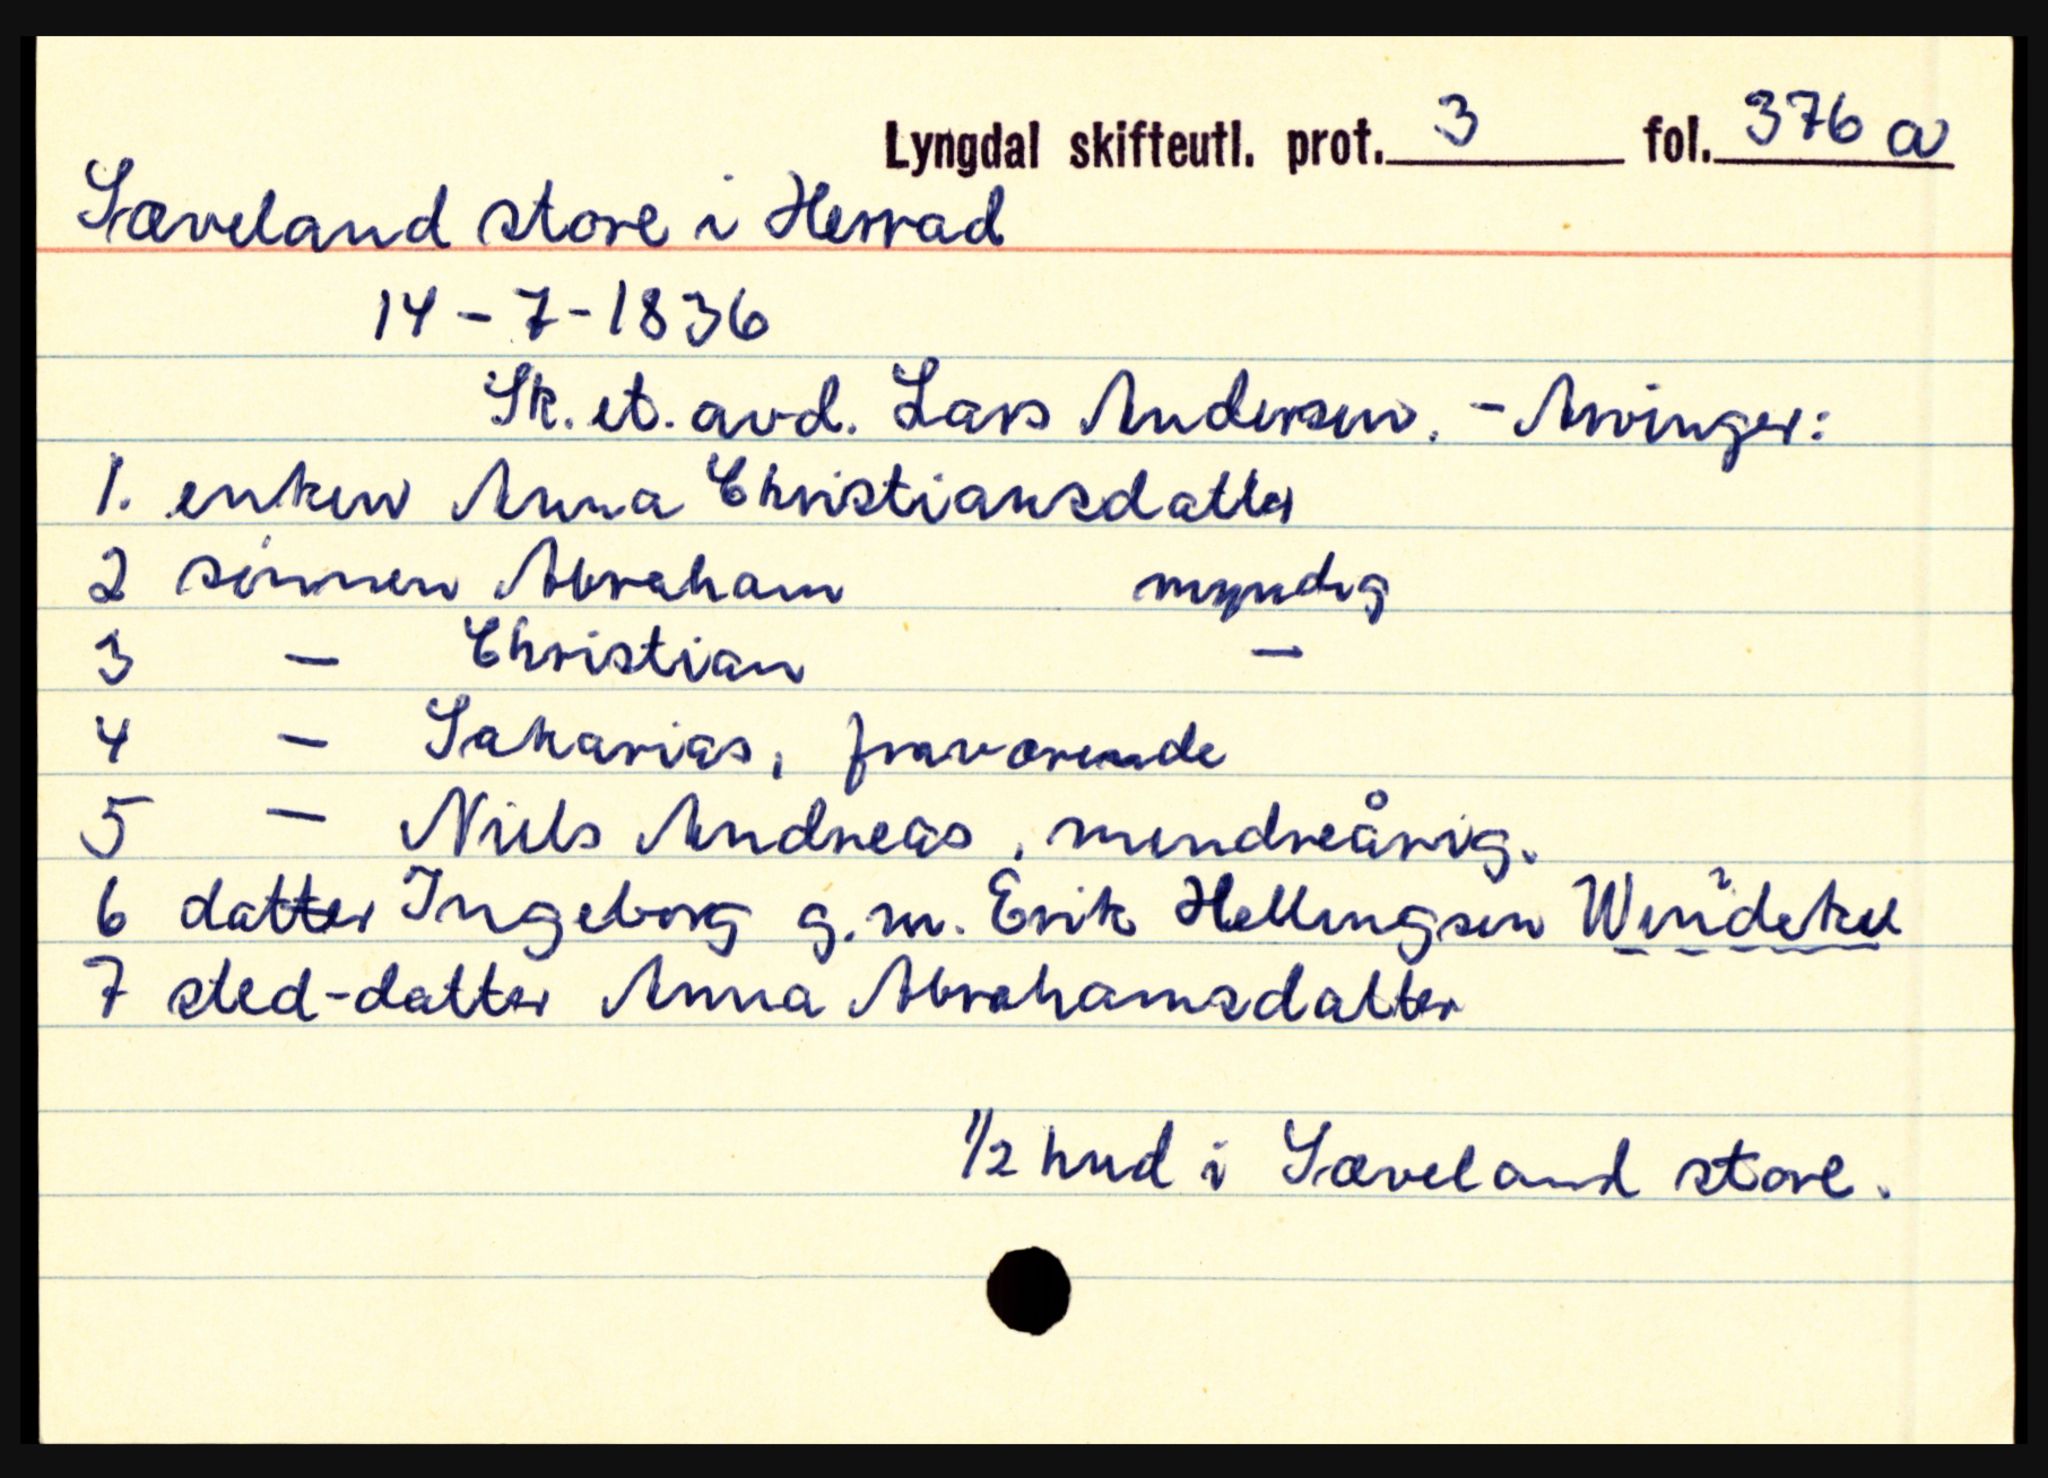 Lyngdal skifteutl. prot. 3 fol. 376 a
Sæveland store i Herrad
14-7-1836
Sk. et. avd. Lars Andersen. - Arvinger:
1. enken Anna Christiansdatter
2 sønnen Abraham myndig
3 - Christian -
4 - Sakarias, fraværende
5 - Niels Andreas, mindreårig.
6 datter Ingeborg g.m. Erik Hellingsen
7 sted-datter Anna Abrahamsdatter
1/2 hud i Sæveland store.